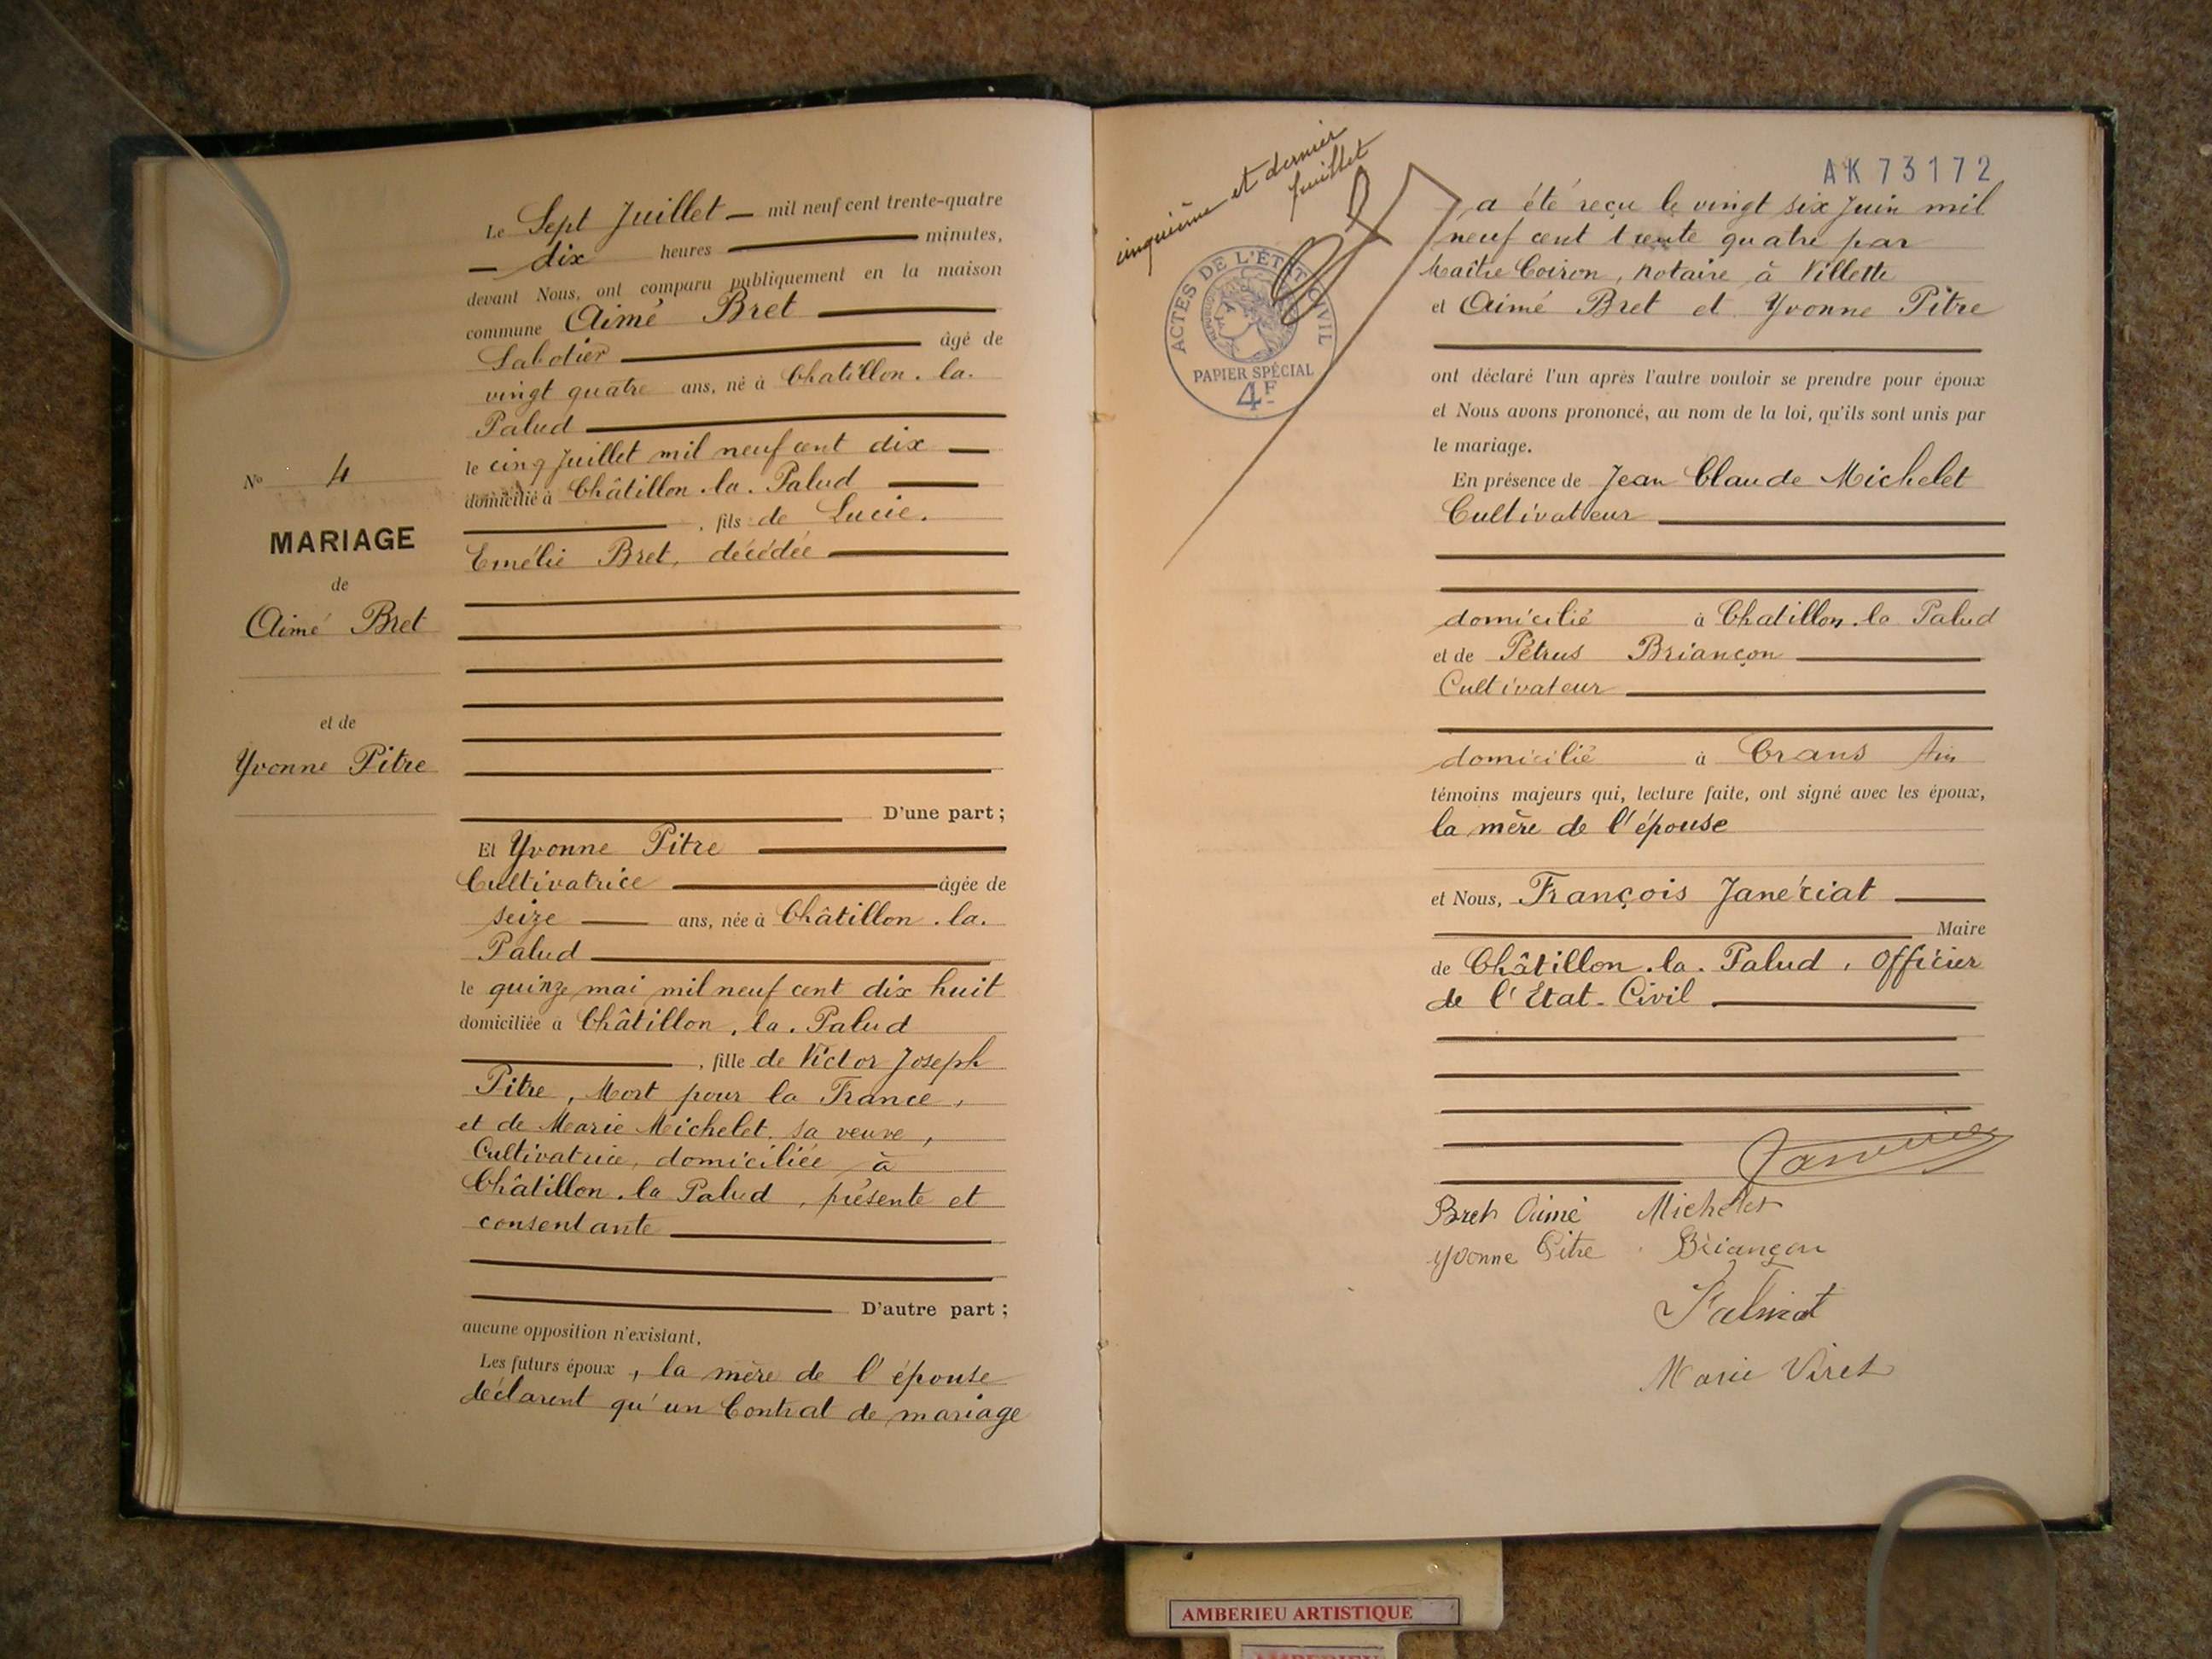 Le Sept Juillet — mil neuf cent trente-quatre
— dix heures — minutes,
devant Nous, ont comparu publiquement en la maison
commune Aimé Bret
Sabotier âgé de
vingt quatre ans, né à Chatillon. la.
Palud
le cinq Juillet mil neuf cent dix
domicilié à Châtillon. la. Palud
, fils de Lucie.
Emélie Bret, décédée
D'une part ;
Et Yvonne Pitre
Cultivatrice âgée de
seize ans, née à Châtillon. la.
Palud
le quinze mai mil neuf cent dix huit
domiciliée à Châtillon. la. Palud
, fille de Victor Joseph
Pitre, Mort pour la France,
et de Marie Michelet, sa veuve,
Cultivatrice, domiciliée à
Châtillon. la Palud, présente et
consentante
D'autre part ;
aucune opposition n'existant,
Les futurs époux, la mère de l'épouse
déclarent qu'un Contrat de mariage
No 4
MARIAGE
de
Aimé Bret
et de
Yvonne Pitre
cinquième et dernier
feuillet
ACTES DE L'ÉTAT CIVIL
PAPIER SPÉCIAL
4F
AK 73172
a été reçu le vingt six Juin mil
neuf cent trente quatre par
Maître Coiron, notaire à Villette
et Aimé Bret et Yvonne Pitre
ont déclaré l'un après l'autre vouloir se prendre pour époux
et Nous avons prononcé, au nom de la loi, qu'ils sont unis par
le mariage.
En présence de Jean Claude Michelet
Cultivateur
domicilié à Chatillon. la Palud
et de Pétrus Briançon
Cultivateur
domicilié à Crans Ain
témoins majeurs qui, lecture faite, ont signé avec les époux,
la mère de l'épouse
et Nous, François Janériat
Maire
de Châtillon. la. Palud, Officier
de l'Etat-Civil
Bret Aimé Michelet
Yvonne Pitre Briançon
Marie Viret
AMBERIEU ARTISTIQUE
AMBERIEU